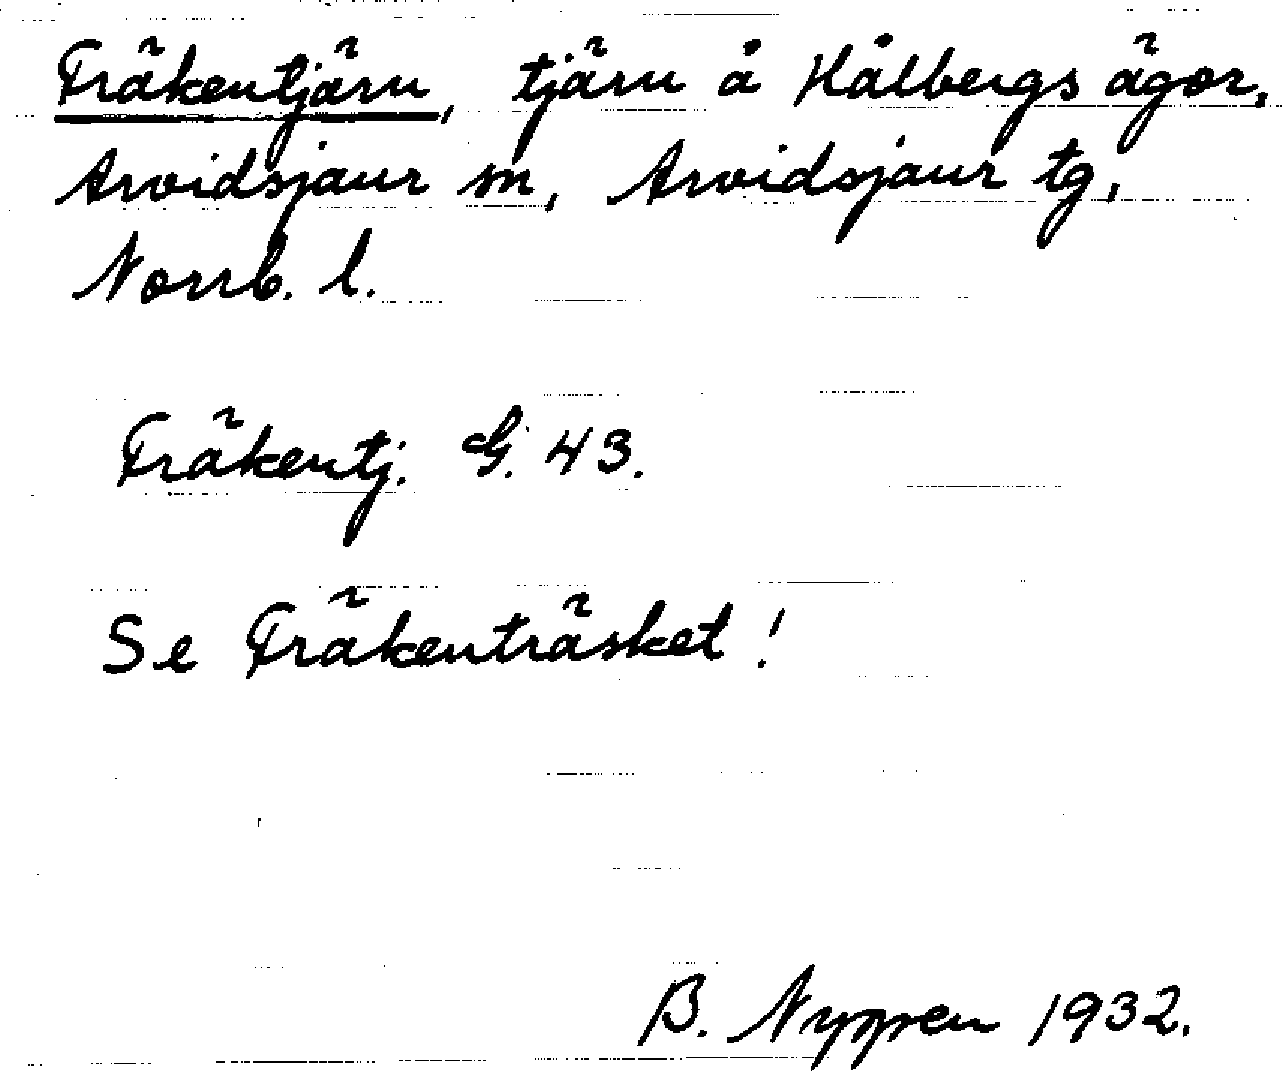 Fräkentjärn, tjärn å Hålbergs ägor,
Arvidsjaur sn, Arvidsjaur tg,
Norrb. l.
Fräkentj. G. 43.
Se Fräkenträsket!
B. 1932.